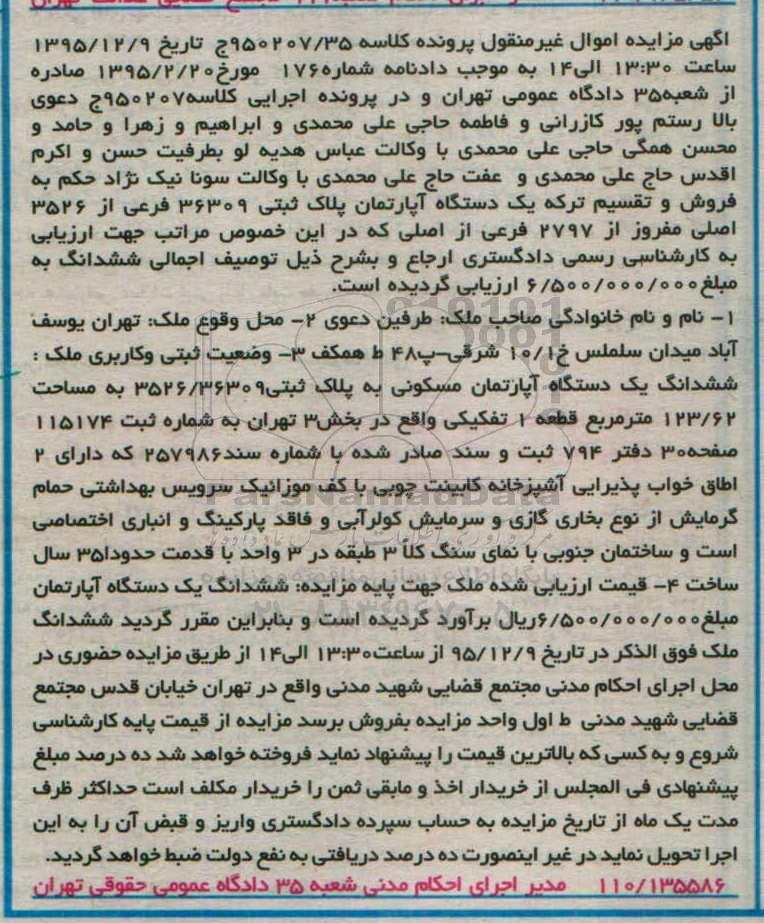 آگهی مزایده اموال غیرمنقول پرونده کلاسه ۹۵۰۲۰۷/۳۵ج تاریخ ۱۳۹۵/۱۲/۹
ساعت ۱۳:۳۰ الی۱۴ به موجب دادنامه شماره۱۷۶ مورخ۱۳۹۵/۲/۲۰ صادره
از شعبه۳۵ دادگاه عمومی تهران و در پرونده اجرایی کلاسه۹۵۰۲۰۷ج دعوی
بالا رستم پور کازرانی و فاطمه حاجی علی محمدی و ابراهیم و زهرا و حامد و
محسن همگی حاجی علی محمدی با وکالت عباس هدیه لو بطرفیت حسن و اکرم
اقدس حاج علی محمدی و عفت حاج علی محمدی با وکالت سونا نیک نژاد حکم به
فروش و تقسیم ترکه یک دستگاه آپارتمان پلاک ثبتی ۳۶۳۰۹ فرعی از ۳۵۲۶
اصلی مفروز از ۲۷۹۷ فرعی از اصلی که در این خصوص مراتب جهت ارزیابی
به کارشناسی رسمی دادگستری ارجاع و بشرح ذیل توصیف اجمالی ششدانگ به
مبلغ۶/۵۰۰/۰۰۰/۰۰۰ ارزیابی گردیده است.
۱- نام و نام خانوادگی صاحب ملک: طرفین دعوی ۲- محل وقوع ملک: تهران یوسف
آباد میدان سلملس خ۱۰/۱ شرقی-پ۴۸ ط همکف ۳- وضعیت ثبتی وکاربری ملک :
ششدانگ یک دستگاه آپارتمان مسکونی به پلاک ثبتی۳۵۲۶/۳۶۳۰۹ به مساحت
۱۲۳/۶۲ مترمربع قطعه ۱ تفکیکی واقع در بخش۳ تهران به شماره ثبت ۱۱۵۱۷۴
صفحه۳۰ دفتر ۷۹۴ ثبت و سند صادر شده با شماره سند۲۵۷۹۸۶ که دارای ۲
اطاق خواب پذیرایی آشپزخانه کابینت چوبی با کف موزائیک سرویس بهداشتی حمام
گرمایش از نوع بخاری گازی و سرمایش کولرآبی و فاقد پارکینگ و انباری اختصاصی
است و ساختمان جنوبی با نمای سنگ کلاً ۳ طبقه در ۳ واحد با قدمت حدودا۳۵ سال
ساخت ۴- قیمت ارزیابی شده ملک جهت پایه مزایده: ششدانگ یک دستگاه آپارتمان
مبلغ۶/۵۰۰/۰۰۰/۰۰۰ریال برآورد گردیده است و بنابراین مقرر گردید ششدانگ
ملک فوق الذکر در تاریخ ۹۵/۱۲/۹ از ساعت۱۳:۳۰ الی۱۴ از طریق مزایده حضوری در
محل اجرای احکام مدنی مجتمع قضایی شهید مدنی واقع در تهران خیابان قدس مجتمع
قضایی شهید مدنی ط اول واحد مزایده بفروش برسد مزایده از قیمت پایه کارشناسی
شروع و به کسی که بالاترین قیمت را پیشنهاد نماید فروخته خواهد شد ده درصد مبلغ
پیشنهادی فی المجلس از خریدار اخذ و مابقی ثمن را خریدار مکلف است حداکثر ظرف
مدت یک ماه از تاریخ مزایده به حساب سپرده دادگستری واریز و قبض آن را به این
اجرا تحویل نماید در غیر اینصورت ده درصد دریافتی به نفع دولت ضبط خواهد گردید.
۱۱۰/۱۳۵۵۸۶ مدیر اجرای احکام مدنی شعبه ۳۵ دادگاه عمومی حقوقی تهران